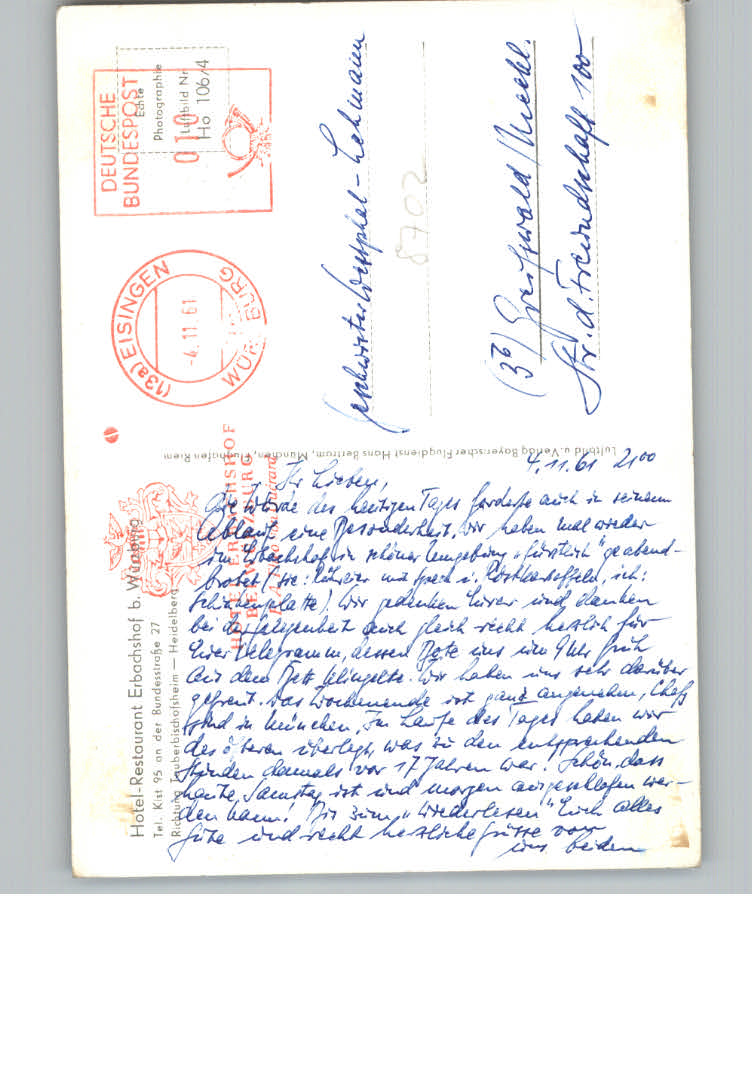 Hotel-Restaurant Erbachshof b. Würzburg
Tel. Kist 95 an der Bundesstraße 27
Richtung Tauberbischofsheim — Heidelberg
HOTEL ERBACHSHOF
BEI WÜRZBURG
(13a) EISINGEN
WÜRZBURG
-4.11.61
DEUTSCHE
BUNDESPOST
010
Echte
Photographie
Luftbild Nr.
Ho 106/4
Luftbild u. Verlag Bayerischer Flugdienst Hans Bertram, München, Flughafen Riem
4.11.61 21⁰⁰
Ihr Lieben,
die Würde des heutigen Tages forderte auch in seinem
Ablauf eine Besonderheit, wir haben mal wieder
im Erbachshof in schöner Umgebung „fürstlich" geabend-
brotet (sie: mit Speck u. Röstkartoffeln, ich:
Schinkenplatte). Wir gedenken Eurer und danken
bei der Gelegenheit auch gleich recht herzlich für
Euer Telegramm, dessen Bote uns um 9 Uhr früh
aus dem Bett klingelte. Wir haben uns sehr darüber
gefreut. Das Wochenende ist ganz angenehm, Chefs
sind in München. Im Laufe des Tages haben wir
des öfteren überlegt, was zu den entsprechenden
Stunden damals vor 17 Jahren war. Schön, dass
heute Samstag ist und morgen ausgeschlafen wer-
den kann! Bis zum „Wiederlesen" Euch alles
Gute und recht herzliche Grüsse von
uns beiden
Geschwister Westphal-Lehmann
8702
(3b) Greifswald/Meckl.
Str. d. Freundschaft 100